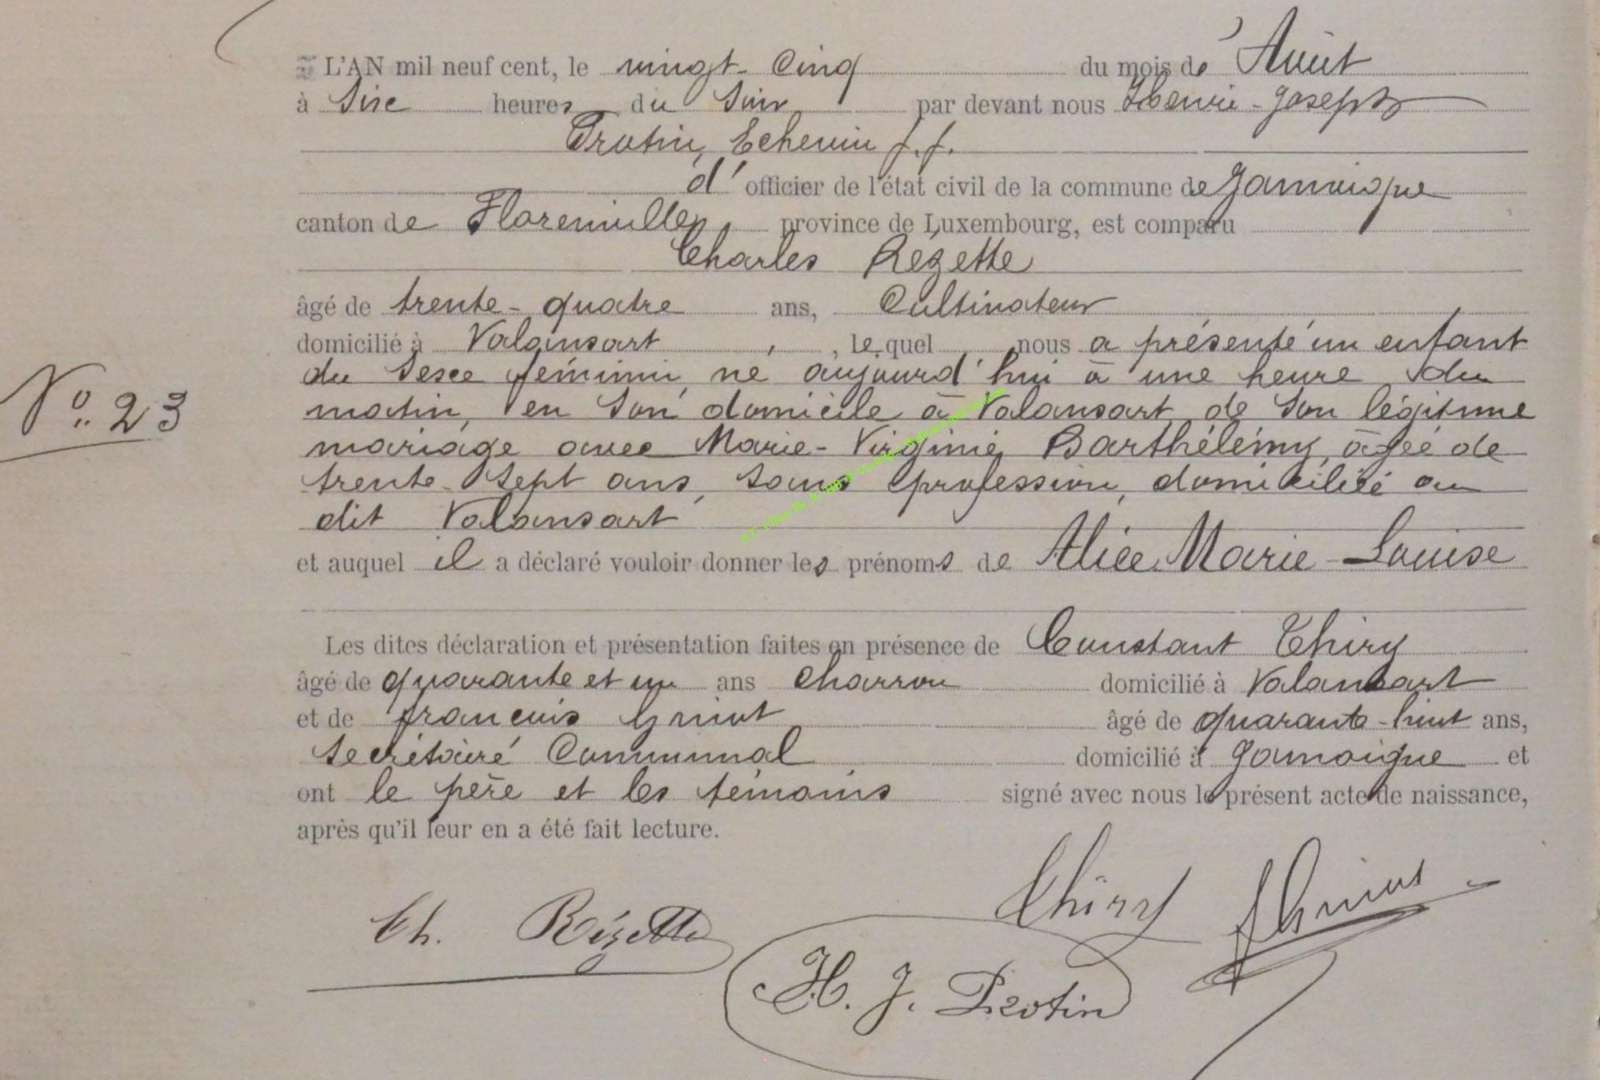 L'AN mil neuf cent, le vingt-cinq du mois d'Août
à Six heures du Soir par devant nous Henri-Joseph
Protin, Echevin f.f.
d'officier de l'état civil de la commune de Jamoigne
canton de Florenville, province de Luxembourg, est comparu
Charles Rézette
âgé de trente-quatre ans, Cultivateur
domicilié à Valansart, lequel nous a présenté un enfant
du Sexe féminin, né aujourd'hui à une heure du
matin, en Son domicile à Valansart, de Son légitime
mariage avec Marie-Virginie Barthélemy, âgée de
trente-Sept ans, Sans profession, domiciliée au
dit Valansart
et auquel il a déclaré vouloir donner les prénoms de Alice Marie-Louise
Les dites déclaration et présentation faites en présence de Constant Thiry
âgé de quarante et un ans Charron domicilié à Valansart
N° 23
et de François âgé de quarante-huit ans,
Secrétaire Communal domicilié à Jamoigne et
ont le père et les témoins signé avec nous le présent acte de naissance,
après qu'il leur en a été fait lecture.
Thiry
Ch. Rézette
H. J. Protin